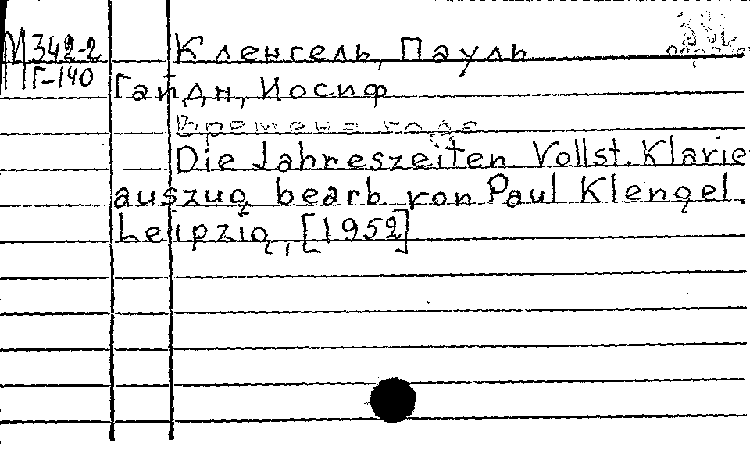 М 342-2 Кленгель, Пауль
Г-140
Гайдн, Иосиф
Времена года
Die Jahreszeiten Vollst. Klavie
auszug bearb von Paul Klengel.
Leipzig, [1952]